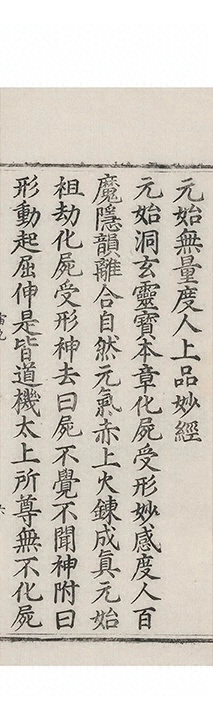 元始無量度人上品妙經
元始洞玄靈寶本章化屍受形妙感度人百
魔隱韻離合自然元氣赤上火鍊成眞元始
祖劫化屍受形神去曰屍不覺不聞神附曰
形動起屈伸是皆道機太上所尊無不化屍